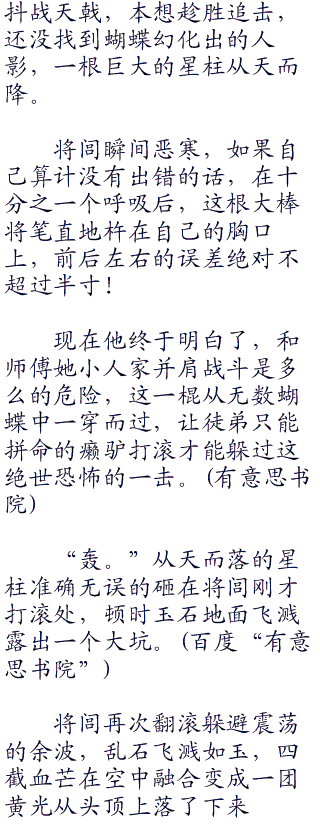 抖战天戟，本想趁胜追击，
还没找到蝴蝶幻化出的人
影，一根巨大的星柱从天而
降。
将闾瞬间恶寒，如果自
己算计没有出错的话，在十
分之一个呼吸后，这根大棒
将笔直地杵在自己的胸口
上，前后左右的误差绝对不
超过半寸！
现在他终于明白了，和
师傅她小人家并肩战斗是多
么的危险，这一棍从无数蝴
蝶中一穿而过，让徒弟只能
拼命的癞驴打滚才能躲过这
绝世恐怖的一击。(有意思书
院)
“轰。”从天而落的星
柱准确无误的砸在将闾刚才
打滚处，顿时玉石地面飞溅
露出一个大坑。(百度“有意
思书院”)
将闾再次翻滚躲避震荡
的余波，乱石飞溅如玉，四
截血芒在空中融合变成一团
黄光从头顶上落了下来